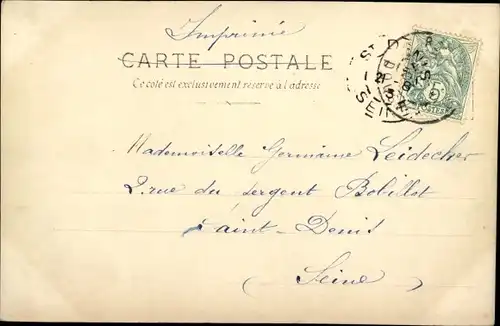 Imprimé
CARTE POSTALE
Ce côté est exclusivement réservé à l'adresse
Mademoiselle Germaine Leidecher
2 rue du sergent Bobillot
Saint-Denis
(Seine)